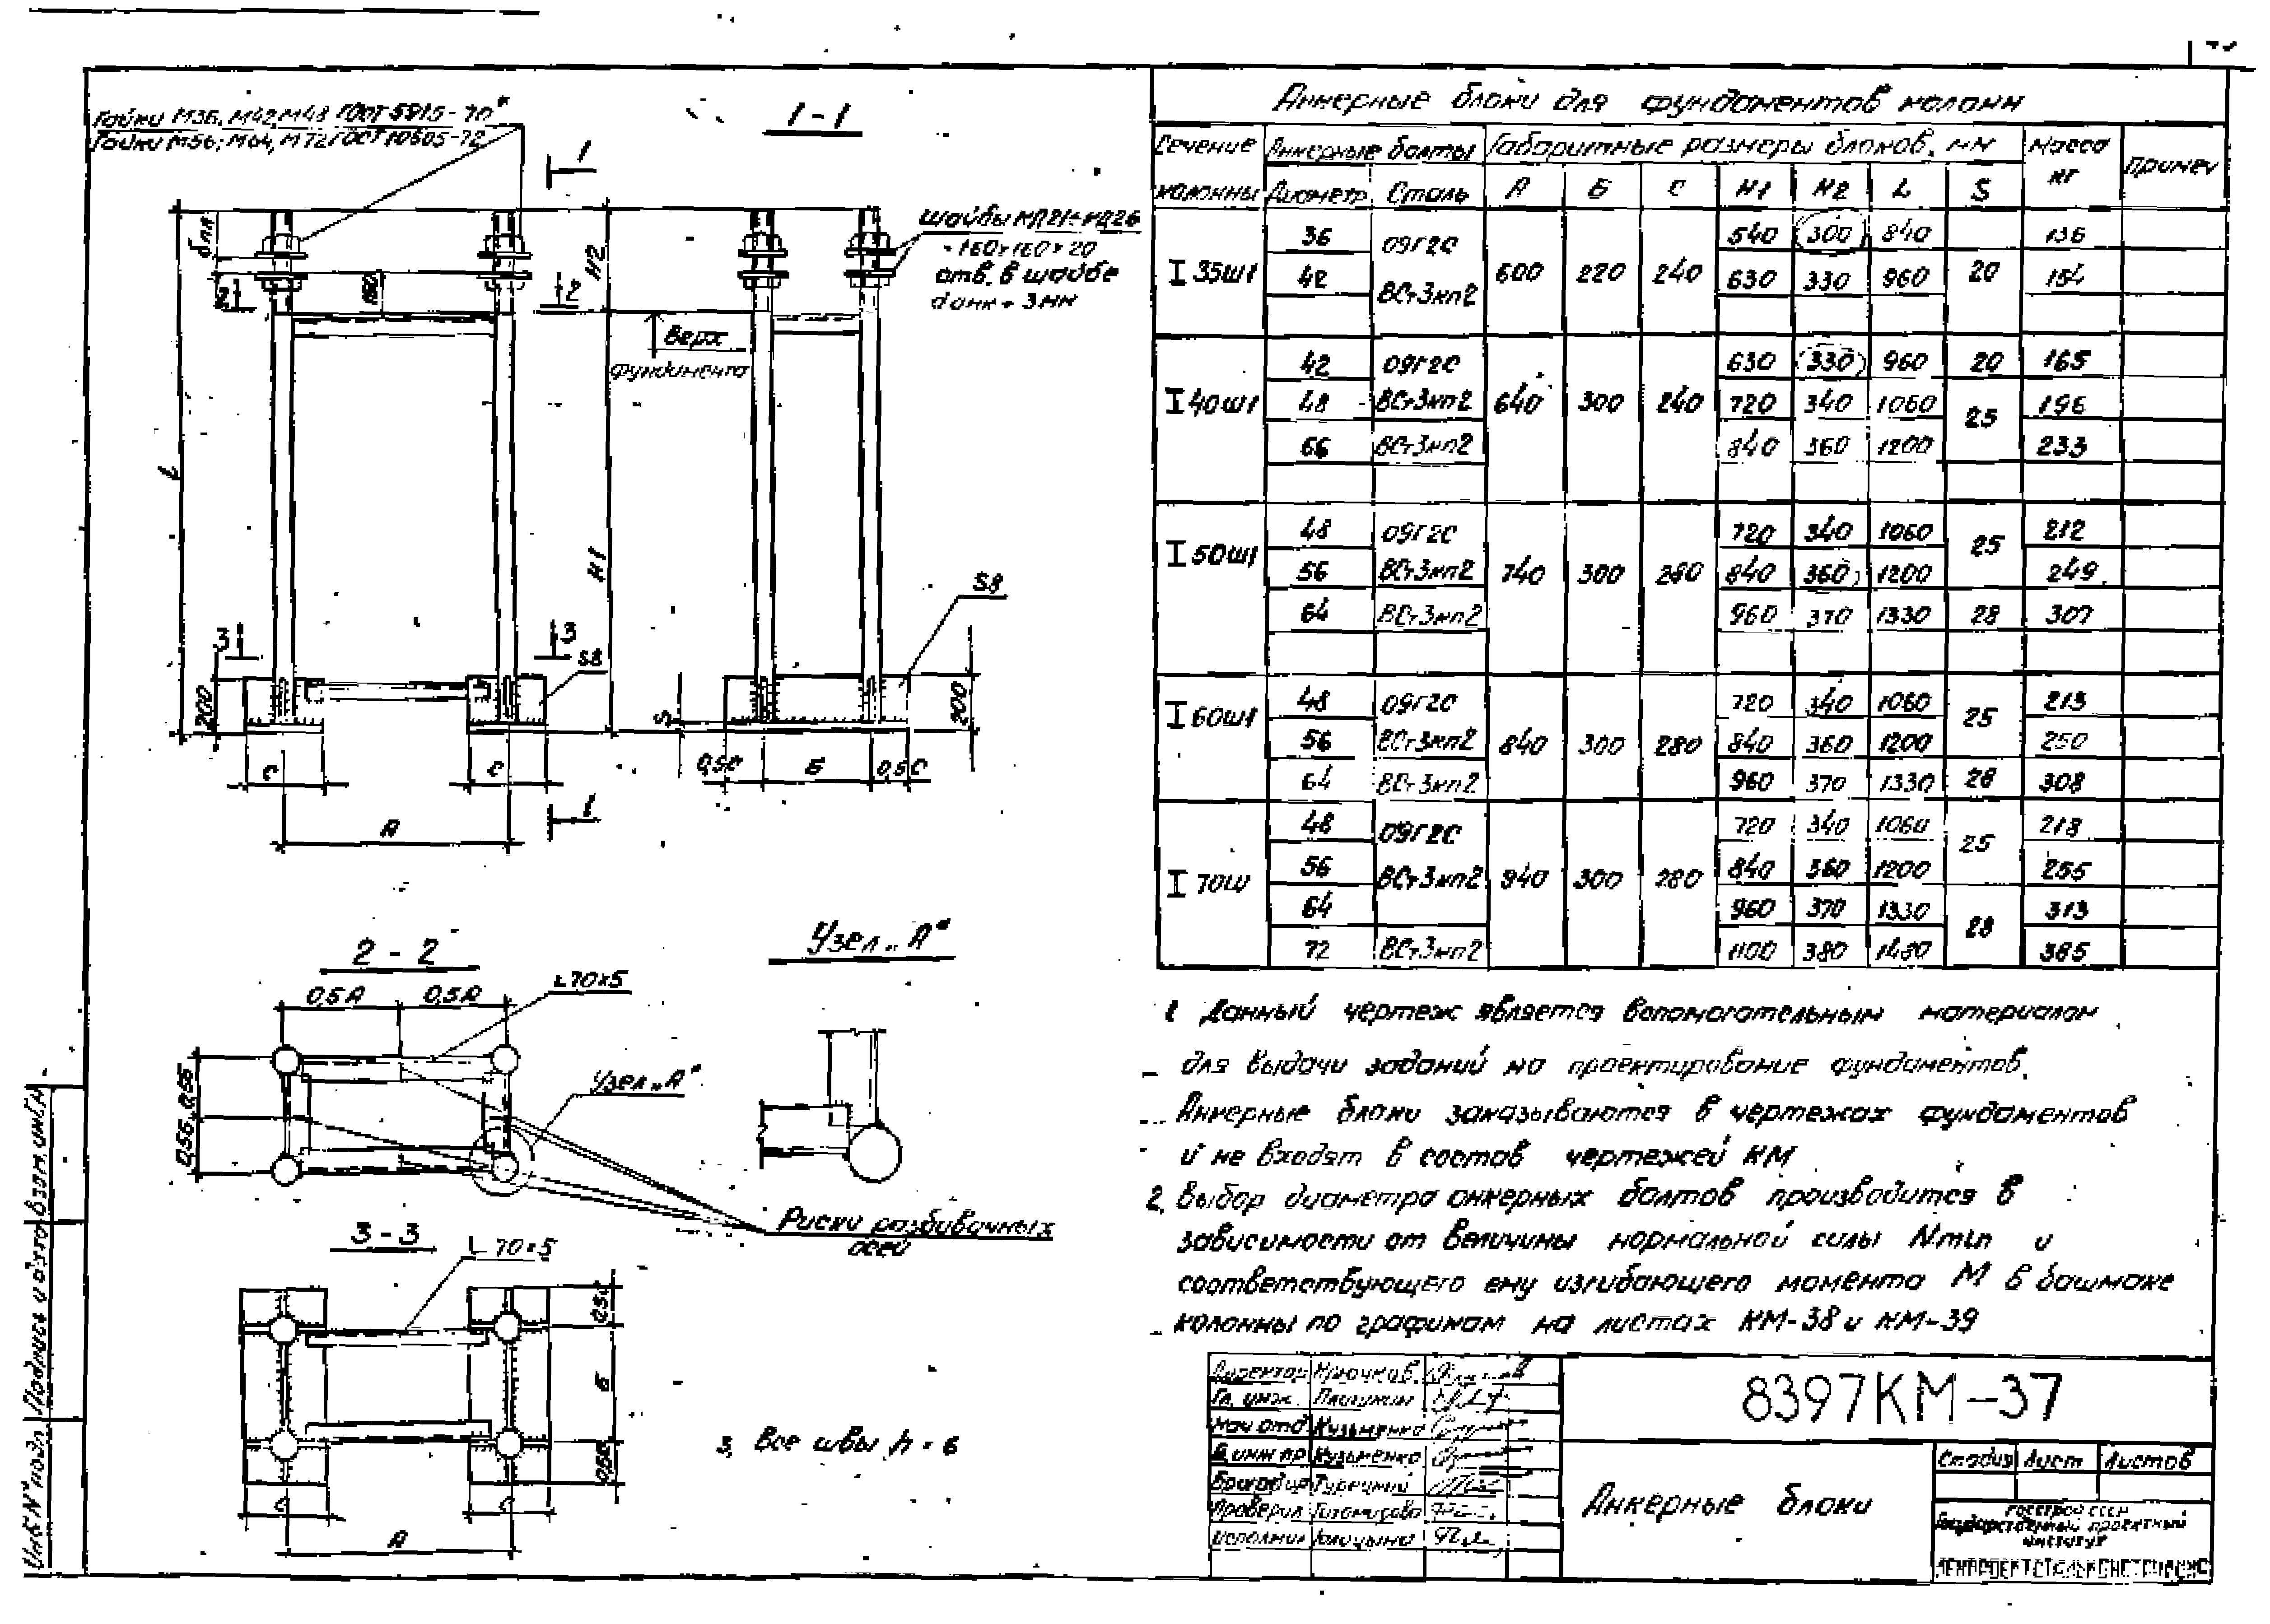 Гайки М36, М42, М48 ГОСТ 5915-70*
Гайки М56, М64, М72 ГОСТ 10605-72
1-1
1
L
2
2
150
H2
H1
Верх
фундамента
- 160×160×20
отв. в шайбе
dанк + 3мм
3
3
S8
S8
200
200
S
C
C
A
0,5C
Б
0,5C
1
2-2
0,5A
0,5A
∟70×5
0,5Б
0,5Б
Узел „А"
Узел „А"
Риски разбивочных
осей
3-3
∟70×5
0,5C
Б
0,5C
C
C
A
3. Все швы h = 6
Анкерные блоки для фундаментов колонн
Сечение колонны
Анкерные болты
Габаритные размеры блоков, мм
Масса кг
Примеч
Диаметр Сталь А Б С H1 H2 L S
I 35ш1 600 220 240 20
36 09Г2С 540 300 840 136
42 ВСт3кп2 630 330 960 154
I 40ш1 640 300 240
42 09Г2С 630 330 960 20 165
48 ВСт3кп2 720 340 1060 25 196
66 ВСт3кп2 840 360 1200 233
I 50ш1 740 300 280
48 09Г2С 720 340 1060 25 212
56 ВСт3кп2 840 360 1200 249
64 ВСт3кп2 960 370 1330 28 307
I 60ш1 840 300 280
48 09Г2С 720 340 1060 25 213
56 ВСт3кп2 840 360 1200 250
64 ВСт3кп2 960 370 1330 28 308
I 70ш 940 300 280
48 09Г2С 720 340 1060 25 218
56 ВСт3кп2 840 360 1200 255
64 960 370 1330 28 313
72 ВСт3кп2 1100 380 1480 365
1 Данный чертеж является вспомогательным материалом
для выдачи заданий на проектирование фундаментов.
Анкерные блоки заказываются в чертежах фундаментов
и не входят в состав чертежей КМ
2. Выбор диаметра анкерных болтов производится в
зависимости от величины нормальной силы Nmin и
соответствующего ему изгибающего момента М в башмаке
колонны по графикам на листах КМ-38 и КМ-39
Директор Крючков
Гл. инж.
Нач отд Кузьменко
Гл инж пр Кузьменко
Бригадир
Проверил
Исполнил
8397КМ-37
Анкерные блоки
Стадия Лист Листов
Госстрой СССР
Государственный проектный
институт
ЛЕНПРОЕКТСТАЛЬКОНСТРУКЦИЯ
Инв N° подл. Подпись и дата Взам. инв N